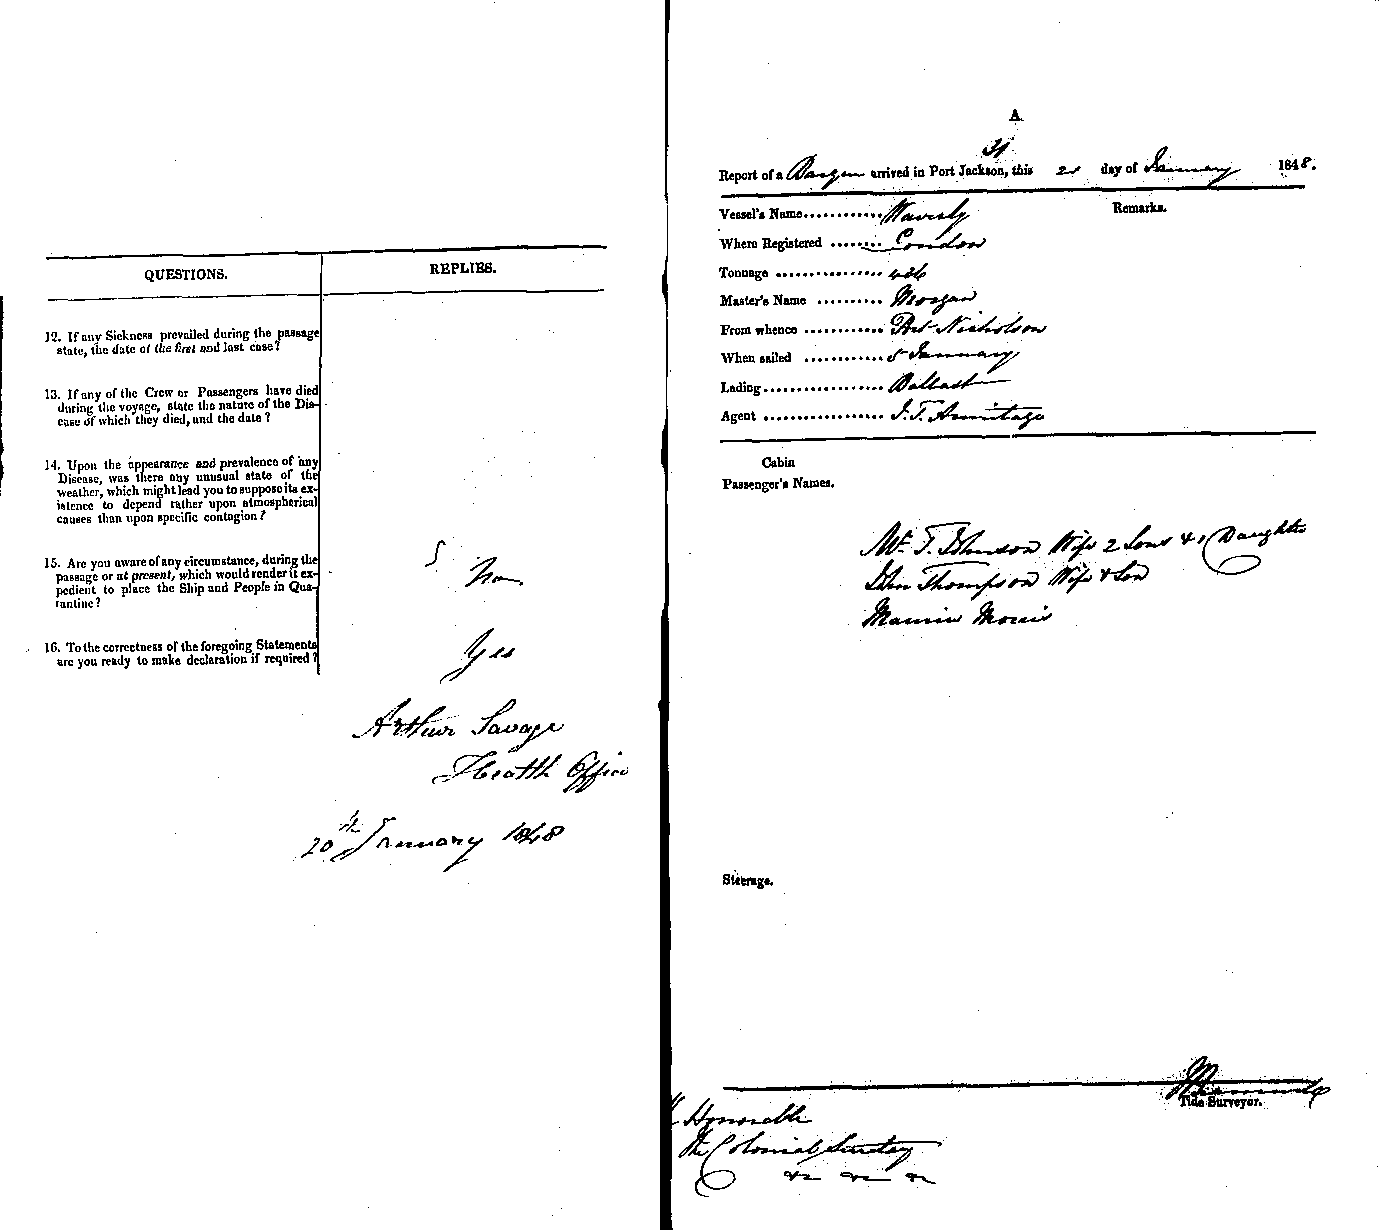 QUESTIONS.
REPLIES.
12. If any Sickness prevailed during the passage
state, the date of the first and last case?
13. If any of the Crew or Passengers have died
during the voyage, state the nature of the Dis-
ease of which they died, and the date?
14. Upon the appearance and prevalence of any
Disease, was there any unusual state of the
weather, which might lead you to suppose its ex-
istence to depend rather upon atmospherical
causes than upon specific contagion?
15. Are you aware of any circumstance, during the
passage or at present, which would render it ex-
pedient to place the Ship and People in Qua-
rantine?
16. To the correctness of the foregoing Statements
are you ready to make declaration if required?
Yes
Arthur Savage
Health Officer
20th January 1848
A
Report of a arrived in Port Jackson, this 21 day of January 1848.
Vessel's Name............ Waverly
Remarks.
Where Registered ........ London
Tonnage ............... 436
Master's Name .......... Morgan
From whence ............ Port Nicholson
When sailed ............ 5 January
Lading.................. Ballast
Agent .................. J. T. Armitage
Cabin
Passenger's Names.
Mr T. Johnson Wife 2 Sons & 1 Daughter
John Thompson Wife & Son
Morris
Steerage.
Tide Surveyor.
Honorable
The Colonial Secretary
&c &c &c